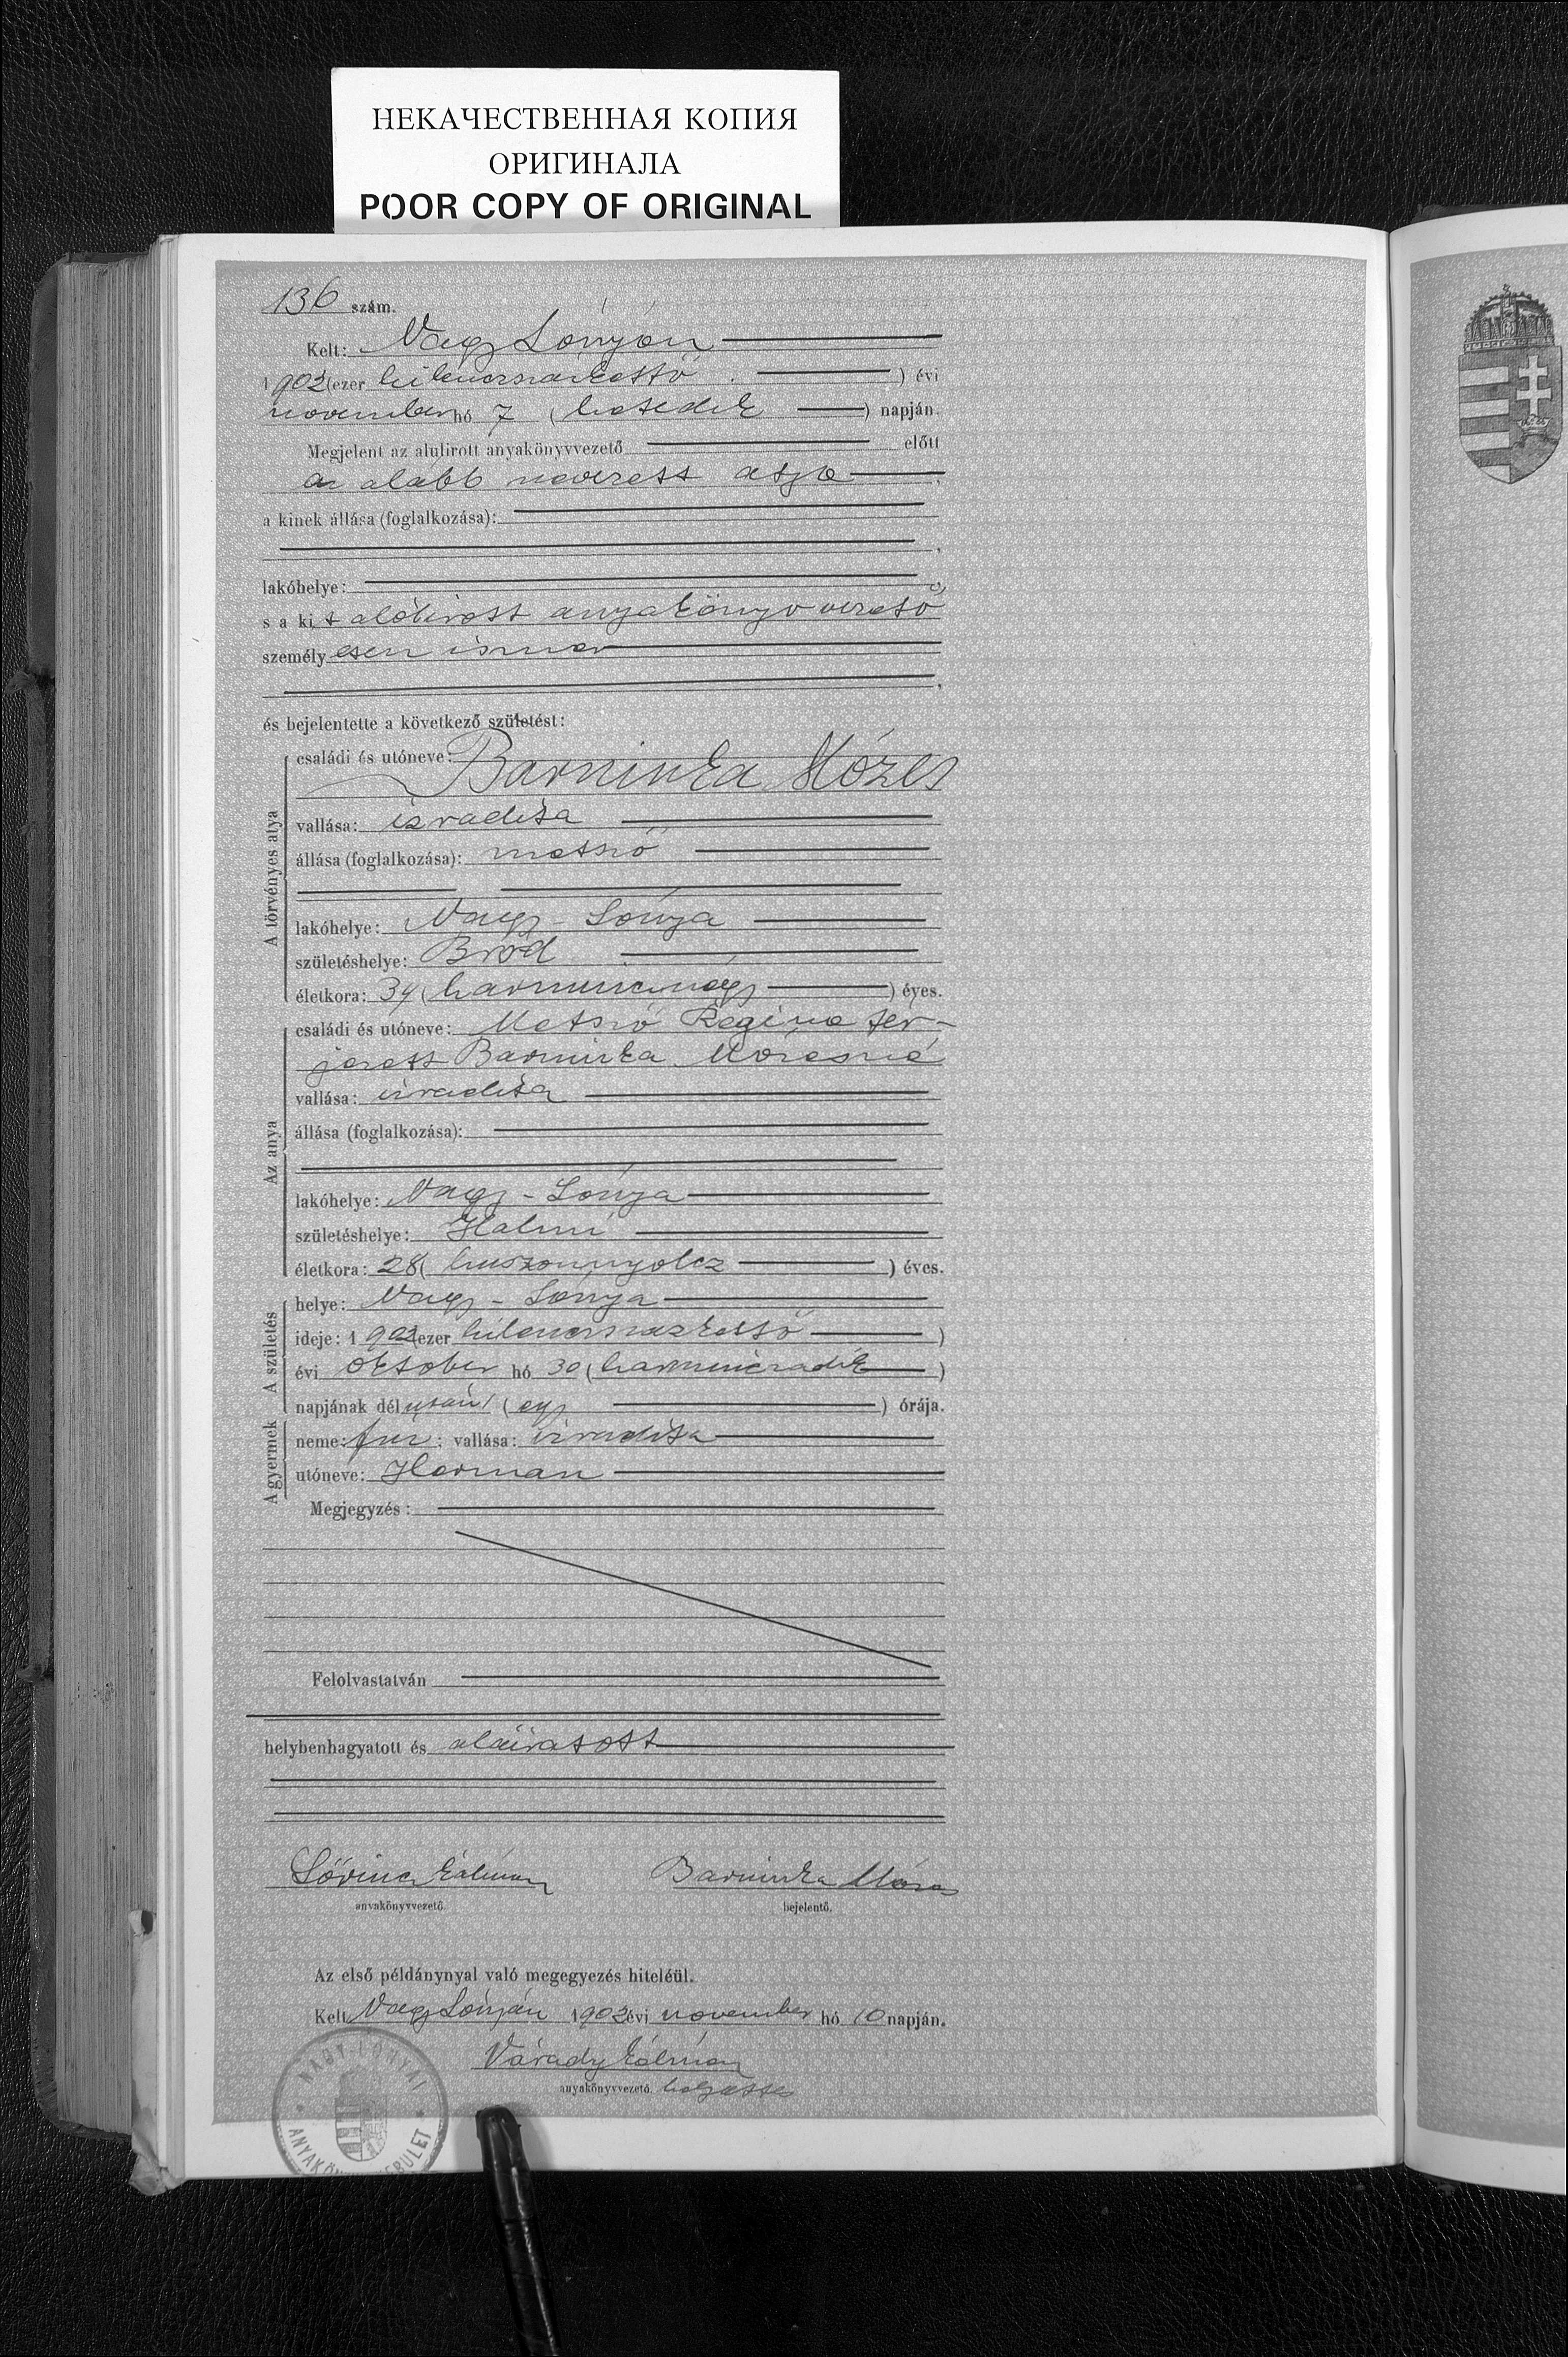 НЕКАЧЕСТВЕННАЯ КОПИЯ
ОРИГИНАЛА
POOR COPY OF ORIGINAL
136 szám.
Kelt: Nagy Lónyán
1902 (ezer kilenczszázkettő) évi
november hó 7 (hetedik) napján.
Megjelent az alulirott anyakönyvvezető előtt
az alább nevezett atya
a kinek állása (foglalkozása):
lakóhelye:
s a kit alólirott anyakönyvvezető
személyesen ismer
és bejelentette a következő születést:
A törvényes atya
családi és utóneve: Barninka Mózes
vallása: izraelita
állása (foglalkozása): metsző
lakóhelye: Nagy-Lónya
születéshelye: Bród
életkora: 34 (harmincznégy) éves.
Az anya
családi és utóneve: Metsző Regina fér-
jezett Barninka Mózesné
vallása: izraelita
állása (foglalkozása):
lakóhelye: Nagy-Lónya
születéshelye: Halmi
életkora: 28 (huszonnyolcz) éves.
A születés
helye: Nagy-Lónya
ideje: 1902 (ezer kilenczszázkettő)
évi október hó 30 (harminczadik)
napjának délután 1 (egy) órája.
A gyermek
neme: fiu; vallása: izraelita
utóneve: Herman
Megjegyzés:
Felolvastatván
helybenhagyatott és aláiratott
Lőrincz Kálmán Barninka Mózes
anyakönyvvezető. bejelentő.
Az első példánynyal való megegyezés hiteléül.
Kelt Nagy Lónyán 1902 évi november hó 10 napján.
Várady Kálmán
anyakönyvvezető helyettes
NAGY-LÓNYAI